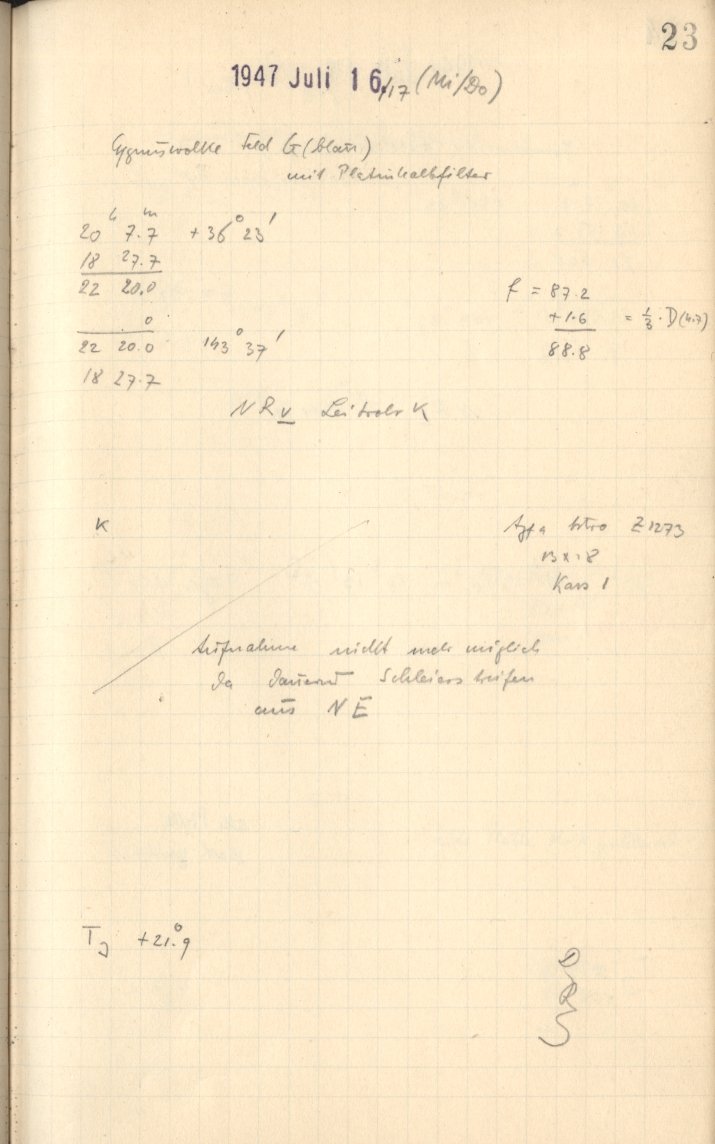 23
1947 Juli 16./17 (Mi/Do)
Cygnuswolke Feld G (blau)
mit Platinhalbfilter
20h 7.m7 +36° 23'
18 27.7
22 20.0
0
22 20.0 143° 37'
18 27.7
f = 87.2
+1.6 = 1/3 · D (4.7)
88.8
NRV Leitrohr K
K
Agfa Astro Z 1273
13 x 18
Kass 1
Aufnahme nicht mehr möglich
da dauernd Schleierstreifen
aus NE
TJ +21.°9